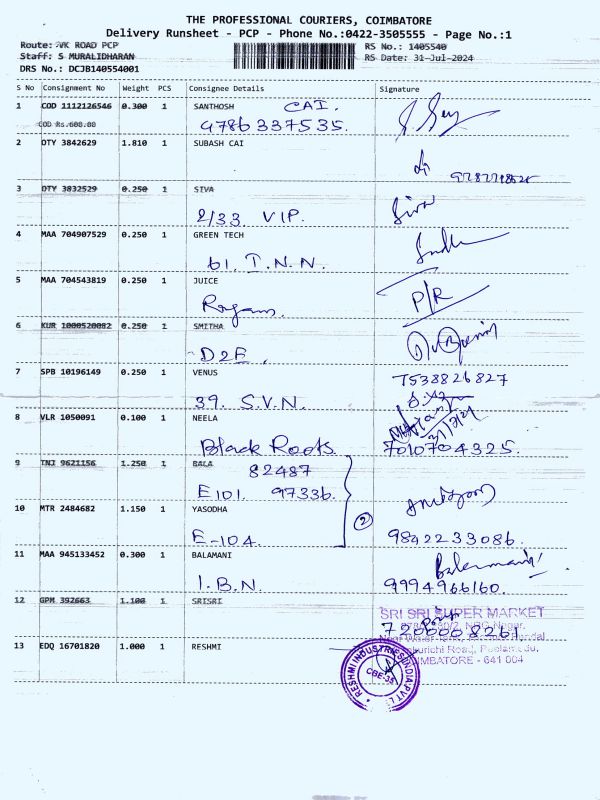 THE PROFESSIONAL COURIERS, COIMBATORE
Delivery Runsheet - PCP - Phone No.:0422-3505555 - Page No.:1
Route: VK ROAD PCP
RS No.: 1405540
Staff: S MURALIDHARAN
RS Date: 31-Jul-2024
DRS No.: DCJB140554001
S No Consignment No Weight PCS Consignee Details Signature
1 COD 1112126546 0.300 1 SANTHOSH CAI.
COD Rs.600.00 9786337535.
2 DTY 3842629 1.810 1 SUBASH CAI
3 DTY 3832529 0.250 1 SIVA
2/33 VIP. Siva
4 MAA 704907529 0.250 1 GREEN TECH
61. T.N.N.
5 MAA 704543819 0.250 1 JUICE
P/R
6 KUR 1000520082 0.250 1 SMITHA
D2F.
7 SPB 10196149 0.250 1 VENUS 7538826827
39. S.V.N.
8 VLR 1050091 0.100 1 NEELA
Black Roots 7010704325.
9 TNJ 9621156 1.250 1 BALA
82487
E101. 97336.
10 MTR 2484682 1.150 1 YASODHA
2
E-104. 9842233086.
11 MAA 945133452 0.300 1 BALAMANI Balamani
I.B.N. 9994966160.
12 GPM 392663 1.100 1 SRISRI
SRI SRI SUPER MARKET
7200008261
13 EDQ 16701820 1.000 1 RESHMI
COIMBATORE - 641 004
RESHMI INDUSTRIES INDIA PVT L
CBE-35